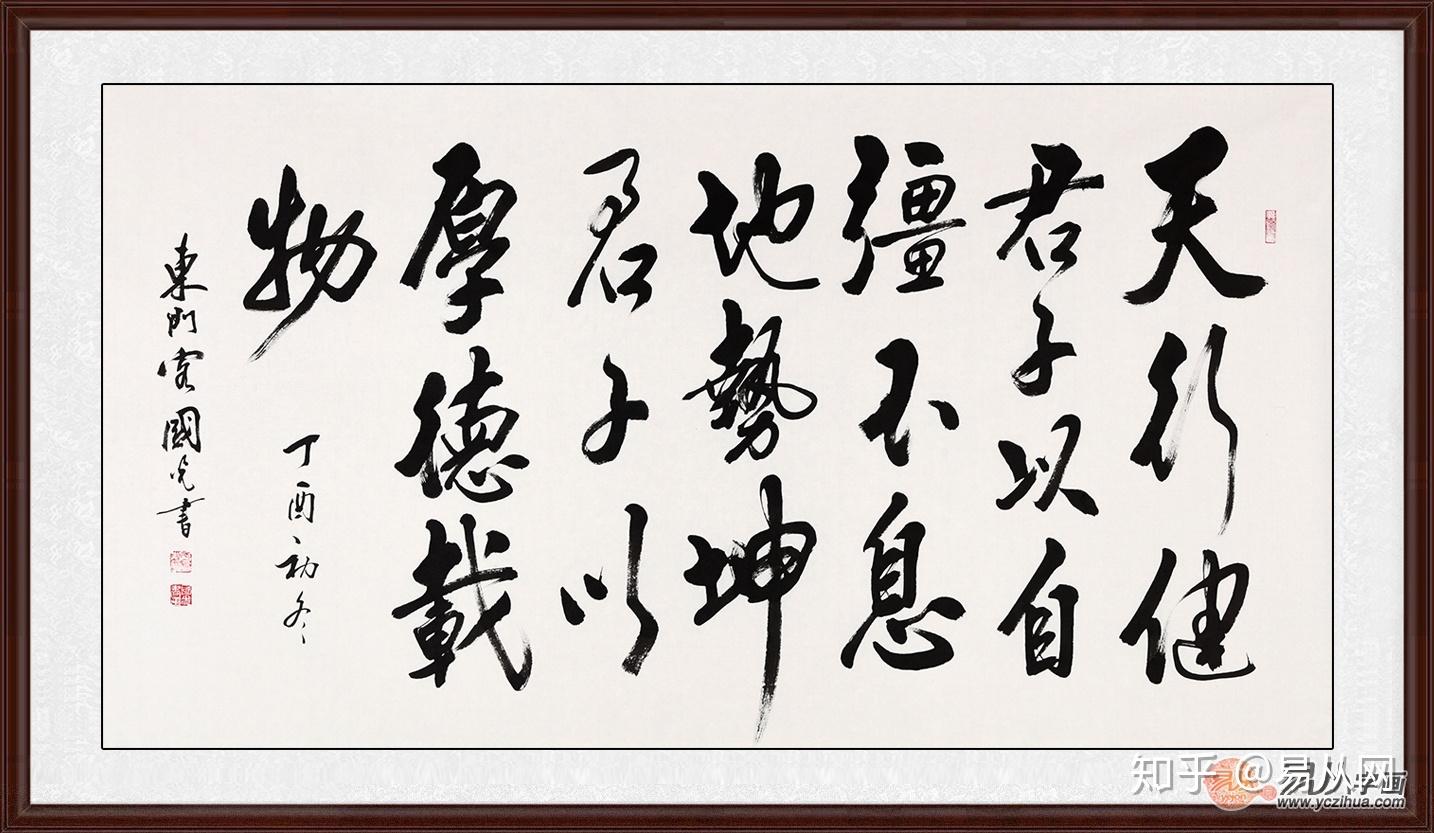 天行健
君子以自
彊不息
地勢坤
君子以
厚德載
物
丁酉初冬
東門客國光書
知乎 @易从网
易从字画
www.yczihua.com